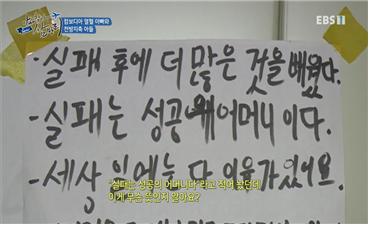 EBS1
캄보디아 열혈 아빠와
천방지축 아들
-실패 후에 더 많은 것을 배웠다.
-실패는 성공에 어머니 이다.
-세상 일에는 다 이유가 있어요.
"실패는 성공의 어머니다" 라고 적어 놨던데
이게 무슨 뜻인지 알아요?